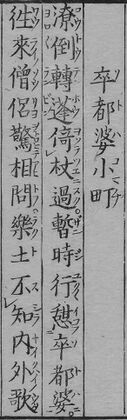 卒都婆小町
潦倒轉蓬倚杖過暫時行憩卒都婆
徃來僧侶驚相問樂土不知内外歌